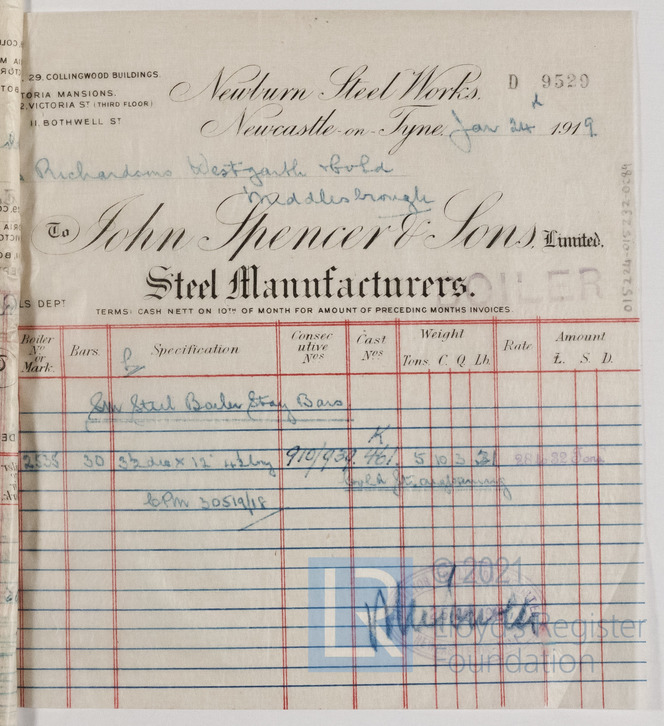 29. COLLINGWOOD BUILDINGS.
TORIA MANSIONS.
2. VICTORIA ST (THIRD FLOOR)
11. BOTHWELL ST
Newburn Steel Works.
D 9529
Newcastle-on-Tyne, Jan 24 1919.
Richardsons Westgarth & Co Ld
Middlesbrough
To John Spencer & Sons, Limited.
Steel Manufacturers.
BOILER
LS DEPT
TERMS: CASH NETT ON 10TH OF MONTH FOR AMOUNT OF PRECEDING MONTHS INVOICES.
Boiler No or Mark. Bars. Specification Consecutive Nos Cast Nos Weight Tons. C. Q. Lb. Rate Amount £. S. D.
Steel Boiler Stay Bars
K
2535 30 3½ dia x 12' 910/939. 461. 5 10 3 21
Cold Straightening
CPM 30519/18
© 2021
LR
Lloyd's Register
Foundation